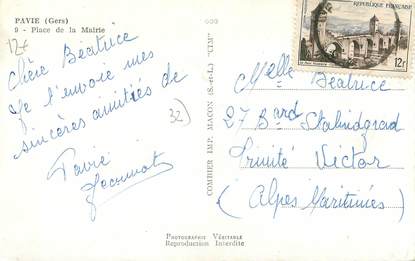 PAVIE (Gers)
9 - Place de la Mairie
12€
Chère Béatrice
Je t'envoie mes
sincères amitiés de
Pavie
32
COMBIER IMP. MACON (S.-et-L.) "CIM"
RÉPUBLIQUE FRANÇAISE
12f
Melle Béatrice
27 Bard Stalindgrad
Trinité Victor
(Alpes Maritimes)
PHOTOGRAPHIE VÉRITABLE
Reproduction Interdite